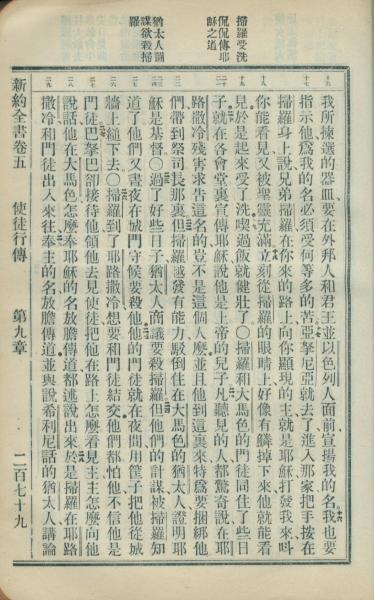 掃羅受洗
侃侃傳耶
穌之道
猶太人謀
謀欲殺掃
羅
我所揀選的器皿要在外邦人和君王並以色列人面前宣揚我的名我也要
指示他爲我的名必須受何等多的苦亞拏尼亞就去了進入那家把手按在
掃羅身上說兄弟掃羅在你來的路上向你顯現的主就是耶穌打發我來呌
你能看見又被聖靈充滿立刻從掃羅的眼睛上好像有鱗掉下來他就能看
見於是起來受了洗喫過飯就健壯了○掃羅和大馬色的門徒同住了些日
子就在各會堂裏宣傳耶穌說他是上帝的兒子凡聽見的人都驚奇說在耶
路撒冷殘害求告這名的豈不是這個人麽並且他到這裏來特爲要捆綁他
們帶到祭司長那裏但掃羅越發有能力駁倒住在大馬色的猶太人證明耶
穌是基督○過了好些日子猶太人商議要殺掃羅但他們的計謀被掃羅知
道了他們又晝夜在城門守候要殺他他的門徒就在夜間用筐子把他從城
牆上縋下去○掃羅到了耶路撒冷想要和門徒結交他們都怕他不信他是
門徒巴拏巴卻接待他領他去見使徒把他在路上怎麽看見主主怎麽向他
說話他在大馬色怎麽奉耶穌的名放膽傳道都述說出來於是掃羅在耶路
撒冷和門徒出入來往奉主的名放膽傳道並與說希利尼話的猶太人講論
新約全書卷五 使徒行傳 第九章 二百七十九